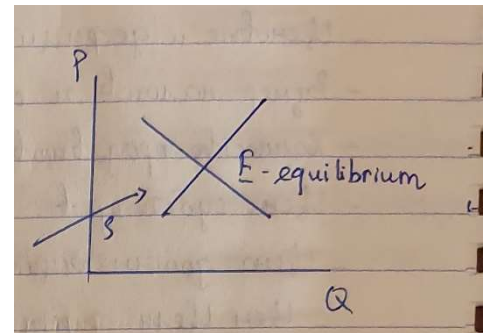 P
E-equilibrium
S
Q